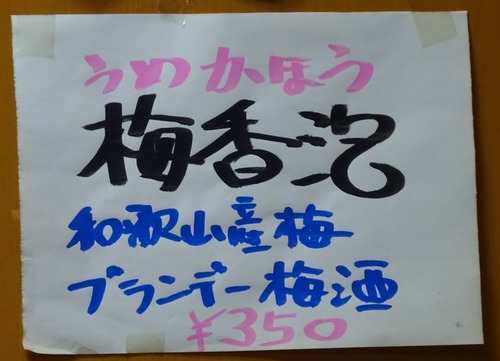 うめかほう
梅香泡
和歌山産梅
ブランデー梅酒
¥350